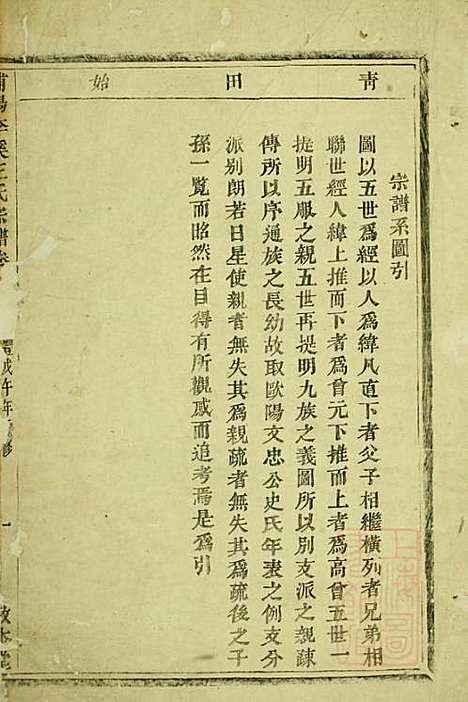 青田始
宗譜系圖引
圖以五世爲經以人爲緯凡直下者父子相繼橫列者兄弟相
聯世經人緯上推而下者爲曾元下推而上者爲高曾五世一
提明五服之親五世再提明九族之義圖所以別支派之親疎
傳所以序通族之長幼故取歐陽文忠公史氏年表之例支分
派別朗若日星使親者無失其爲親疏者無失其爲疏後之子
孫一覽而昭然在目得有所觀感而追考焉是爲引
氏宗譜卷
戊午年
一
敦本堂